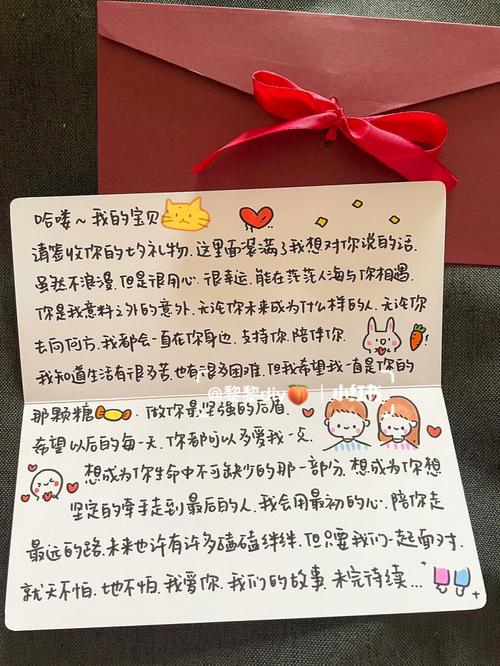 哈喽~我的宝贝
请签收你的七夕礼物.这里面装满了我想对你说的话.
虽然不浪漫.但是很用心.很幸运.能在茫茫人海与你相遇.
你是我意料之外的意外.无论你未来成为什么样的人.无论你
去向何方.我都会一直在你身边.支持你.陪伴你.
我知道生活有很多苦.也有很多困难.但我希望我一直是你的
@黎黎diy🍑 | 小红书
那颗糖 .做你最坚强的后盾.
希望以后的每一天.你都可以多爱我一点.
想成为你生命中不可缺少的那一部分.想成为你想
坚定的牵手走到最后的人.我会用最初的心.陪你走
最远的路.未来也许有许多磕磕绊绊.但只要我们一起面对.
就天不怕.地不怕.我爱你.我们的故事.未完待续...